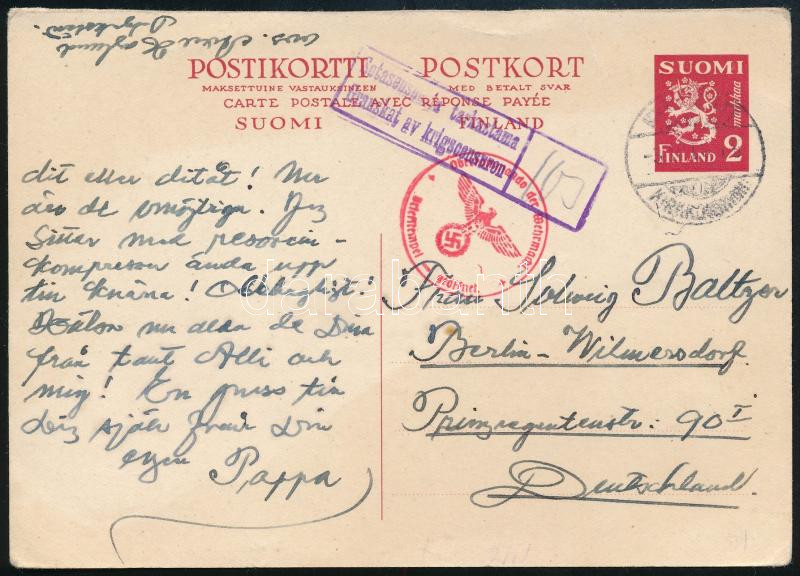 POSTIKORTTI POSTKORT
MAKSETTUINE VASTAUKSINEEN MED BETALT SVAR
CARTE POSTALE AVEC RÉPONSE PAYÉE
SUOMI FINLAND
SUOMI
markkaa
FINLAND 2
Sotasensuurin tarkastama
Granskat av krigscensuren
165
Oberkommando der Wehrmacht
geöffnet
dit eller ditåt! Nu
är de omöjliga. Jag
sitter med resorcin-
kompresser ända upp
till knäna! Obehagligt!
Hälsa nu alla de Dina
från tant Alli och
mig! En puss till
Dig själv från Din
egen Pappa
Frau Solveig Baltzer
Berlin-Wilmersdorf
Prinzregentenstr: 90 I
Deutschland
darabanth